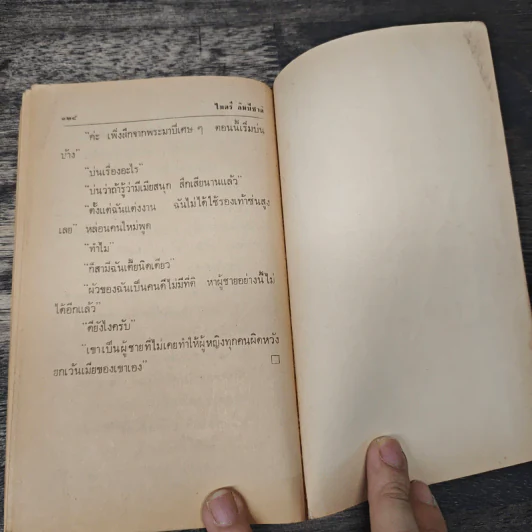 ๑๒๘ ไมตรี ลิมปิชาติ
"ค่ะ เพิ่งสึกจากพระมาปีเศษ ๆ ตอนนี้เริ่มบ่น
บ้าง"
"บ่นเรื่องอะไร"
"บ่นว่าถ้ารู้ว่ามีเมียสนุก สึกเสียนานแล้ว"
"ตั้งแต่ฉันแต่งงาน ฉันไม่ได้ใช้รองเท้าซ่นสูง
เลย" หล่อนคนใหม่พูด
"ทำไม"
"ก็สามีฉันเตี้ยนิดเดียว"
"ผัวของฉันเป็นคนดีไม่มีที่ติ หาผู้ชายอย่างนี้ไม่
ได้อีกแล้ว"
"ดียังไงครับ"
"เขาเป็นผู้ชายที่ไม่เคยทำให้ผู้หญิงทุกคนผิดหวัง
ยกเว้นเมียของเขาเอง"